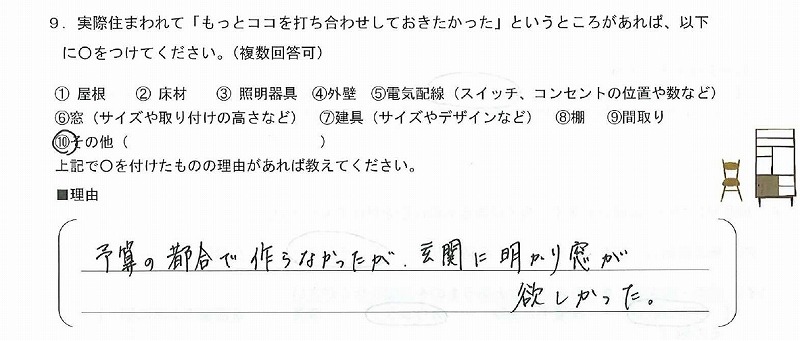 9．実際住まわれて「もっとココを打ち合わせしておきたかった」というところがあれば、以下
に〇をつけてください。（複数回答可）
① 屋根　② 床材　③ 照明器具　④外壁　⑤電気配線（スイッチ、コンセントの位置や数など）
⑥窓（サイズや取り付けの高さなど）　⑦建具（サイズやデザインなど）　⑧棚　⑨間取り
⑩その他（　　　　　　　　　　　　）
上記で〇を付けたものの理由があれば教えてください。
■理由
予算の都合で作らなかったが、玄関に明かり窓が
欲しかった。